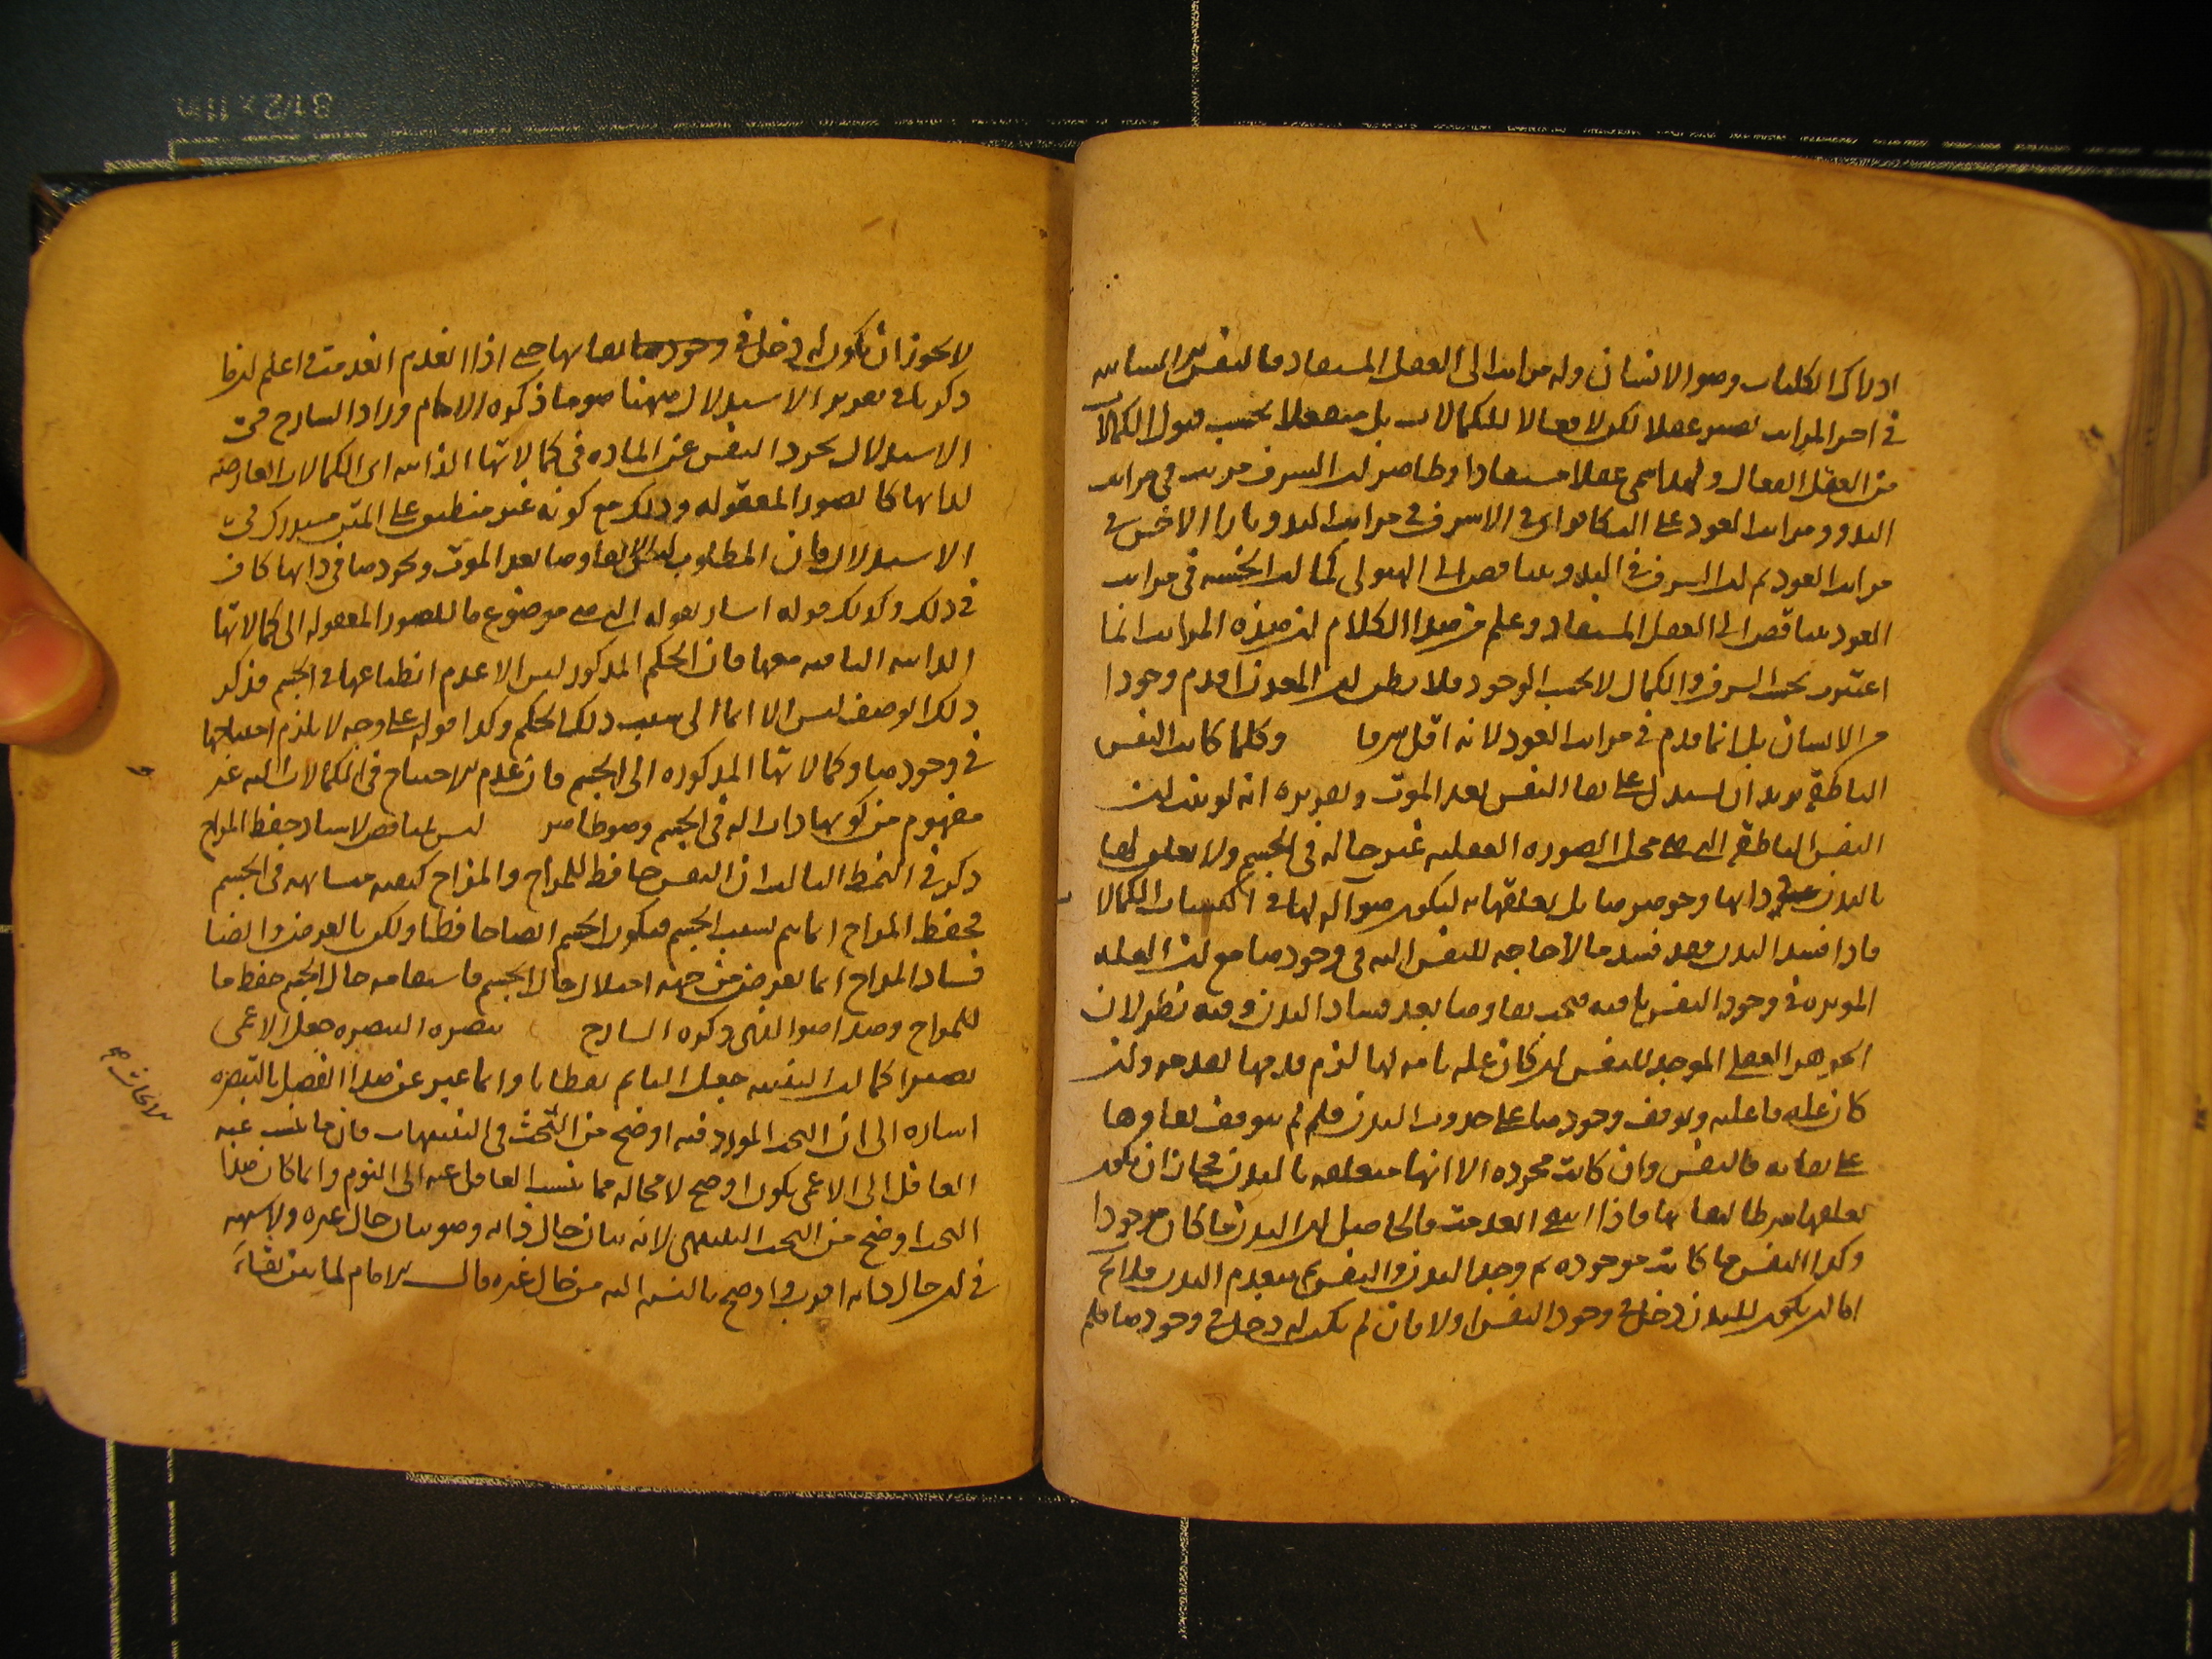 ادراك الكليات وهو الانسان وله مراتب الى العقل المستفاد فالنفس الانسانيه
فى اخر المراتب تصير عقلا لكن لا فعالا للكمالات بل منفعلا بحسب قبول الكمالات
من العقل الفعال ولهذا سمى عقلا مستفادا وظاهر ان الشرف مرتب فى مراتب
البدو ومراتب العود على التكافؤ اى الاشرف فى مراتب البدو بازا الاخس فى
مراتب العود ثم ان الشرف فى البدو يتناقص الى الهيولى كما ان الخسه فى مراتب
العود يتناقص الى العقل المستفاد وعلم من هذا الكلام ان هذه المراتب انما
اعتبرت بحسب الشرف والكمال لا بحسب الوجود فلا يظن ان المعدن اقدم وجودا
من الانسان بل انما قدم فى مراتب العود لانه اقل شرفا وكلما كانت النفس
الناطقة يريد ان يستدل على بقا النفس بعد الموت وتقريره انه لو ثبت ان
النفس الناطقة التى هى محل الصوره العقليه غير حاله فى الجسم ولا تعلق لها
بالبدن فى ذاتها وجوهرها بل تعلقها به ليكون هو آله لها فى اكتساب الكمالات
فاذا فسد البدن فقد فسد ما لا حاجه للنفس اليه فى وجودها مع ان العله
المؤثره فى وجود النفس باقيه فيجب بقاوها بعد فساد البدن وفيه نظر لان
الجوهر العقلى الموجد للنفس ان كان عله تامه لها لزم قدمها لقدمه وان
كان عله فاعليه وتوقف وجودها على حدوث البدن فلم لم يتوقف بقاوها
على بقائه فالنفس وان كانت مجرده الا انها متعلقه بالبدن فجاز ان يكون
تعلقها شرطا لبقائها فاذا انتفى انعدمت فالحاصل ان البدن ما كان موجودا
وكذا النفس ما كانت موجوده ثم وجد البدن والنفس ثم ينعدم البدن فلا يخ
اما ان يكون للبدن دخل فى وجود النفس اولا فان لم يكن له دخل فى وجودها فلم
لا يجوز ان يكون له دخل فى بقائها حتى اذا انعدم انعدمت واعلم ان ما
ذكرناه فى تقرير الاستدلال ههنا هو ما ذكره الامام وزاد الشارح فى
الاستدلال تجرد النفس عن الماده فى كمالاتها الذاتيه اى الكمالات العارضه
لذاتها كالصور المعقوله وذلك مع كونه غير منطبق على المتن مستدرك فى
الاستدلال فان المطلوب بقاوها بعد الموت وتجردها فى ذاتها كاف
فى ذلك وكذلك قوله اشار بقوله التى هى موضوع ما للصور المعقوله الى كمالاتها
الذاتيه الباقيه معها فان الحكم المذكور ليس الا عدم انطباعها فى الجسم فذكر
ذلك الوصف ليس الا ايما الى سبب ذلك الحكم وكذا قوله على وجه لا يلزم احتياجها
فى وجودها وكمالاتها المذكوره الى الجسم فان عدم الاحتياج فى الكمالات اليه غير
مفهوم من كونها ذات اله فى الجسم وهو ظاهر ليس يناقض لاسناد حفظ المزاج
ذكر فى النمط الثالث ان النفس حافظ للمزاج والمزاج كيفيه متشابهه فى الجسم
فحفظ المزاج انما يتم بسبب الجسم فيكون الجسم ايضا حافظا ولكن بالعرض وايضا
فساد المزاج انما يعرض من جهه اختلال حال الجسم فاستقامه حال الجسم حفظ ما
للمزاج وهذا هو الذى ذكره الشارح تبصره التبصره جعل الاعمى
بصيرا كما ان التنبيه جعل النايم يقظانا وانما عبر عن هذا الفصل بالتبصره
اشاره الى ان البحث المورد فيه اوضح من البحث فى التنبيهات فان ما ينسب عنه
الغافل الى الاعمى يكون اوضح لا محاله مما ينسب الغافل عنه الى النوم وانما كان هذا
البحث اوضح من البحث التنبيهى لانه بيان حال ذاته وهو بيان حال غيره ولا شبهه
فى ان حال ذاته اقرب واوضح بالنسبه اليه من حال غيره قال الامام لما بين بقاء